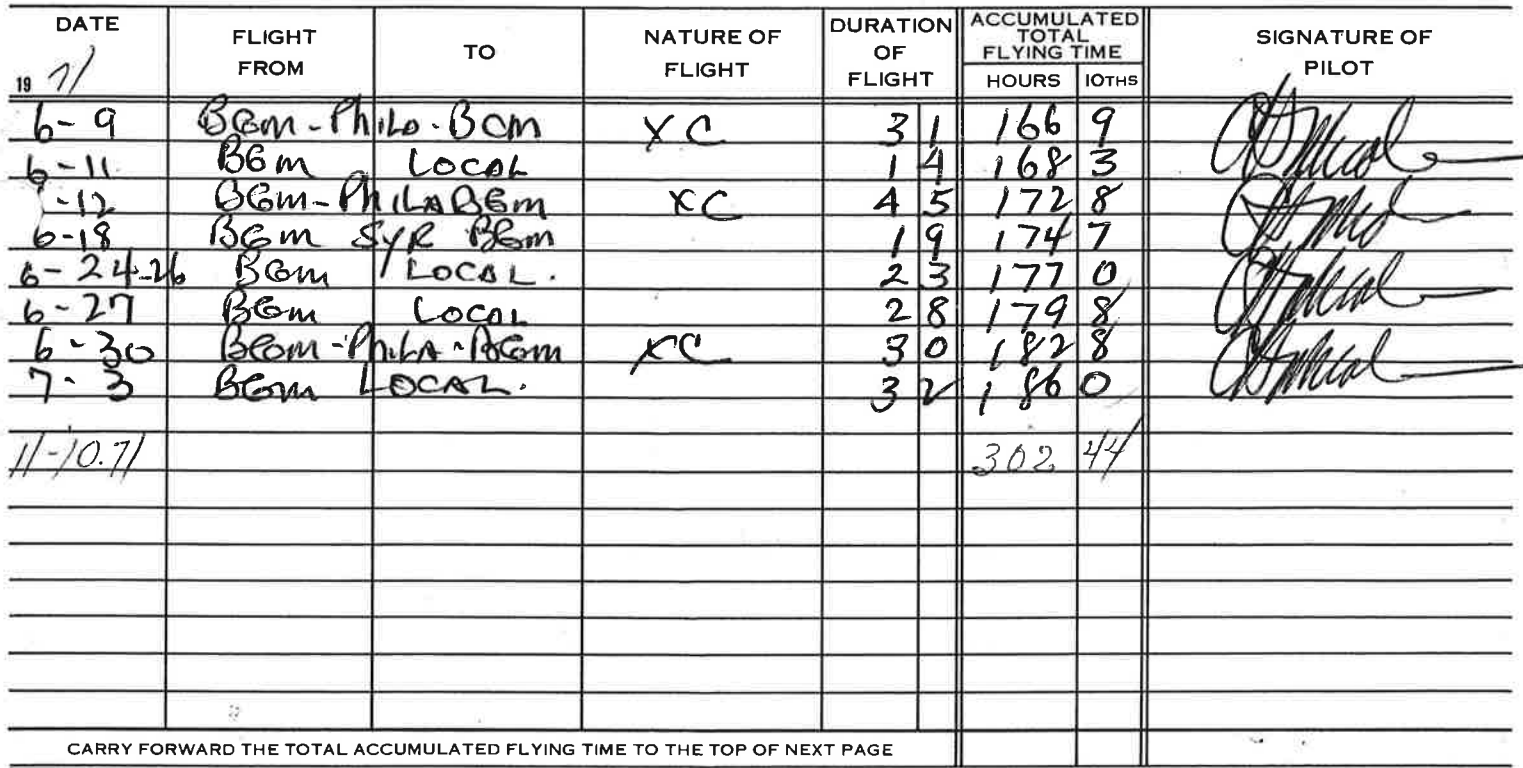 DATE FLIGHT FROM TO NATURE OF FLIGHT DURATION OF FLIGHT ACCUMULATED TOTAL FLYING TIME SIGNATURE OF PILOT
19 71 HOURS 10THS
6-9 BGM-Phila-BGM XC 3 1 166 9
6-11 BGM LOCAL 1 4 168 3
-12 BGM-PhILA BGM XC 4 5 172 8
6-18 BGM SYR BGM 1 9 174 7
6-24-26 BGM LOCAL. 2 3 177 0
6-27 BGM LOCAL 2 8 179 8
6-30 BGM-PhILA-BGM XC 3 0 182 8
7-3 BGM LOCAL. 3 2 186 0
11-10.71 302 44
CARRY FORWARD THE TOTAL ACCUMULATED FLYING TIME TO THE TOP OF NEXT PAGE